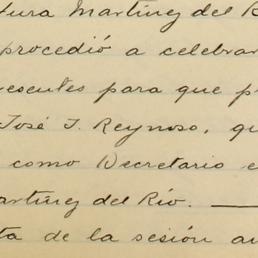 tura Martínez del R
procedió a celebrar
resentes para que p
José J. Reynoso, qu
como Secretario e
artínez del Río.
ta de la sesión an